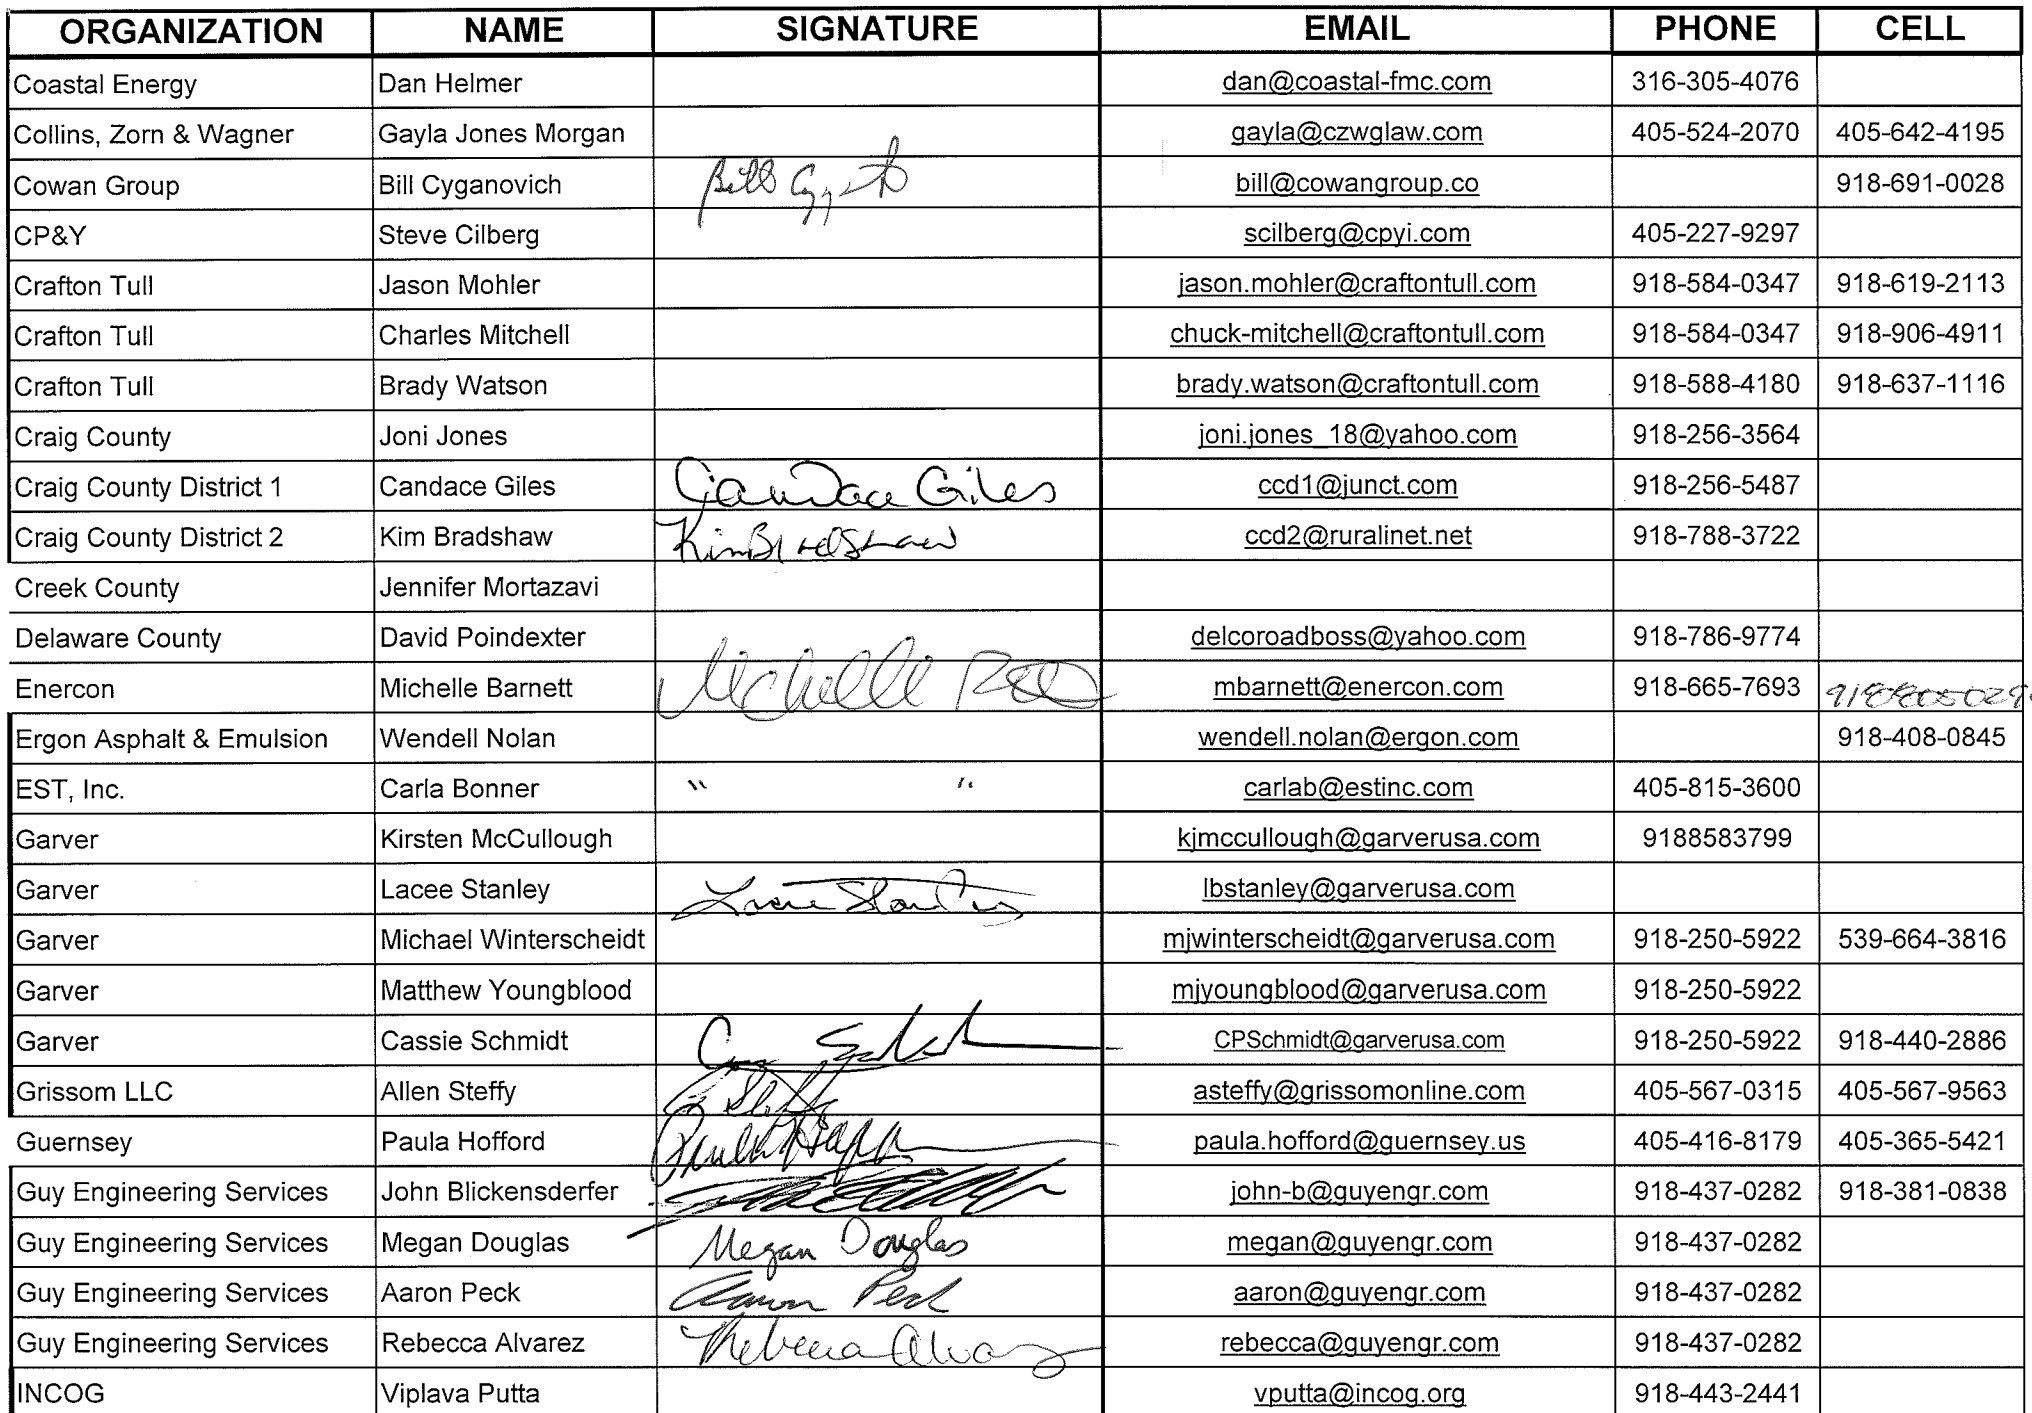 ORGANIZATION NAME SIGNATURE EMAIL PHONE CELL
Coastal Energy Dan Helmer dan@coastal-fmc.com 316-305-4076
Collins, Zorn & Wagner Gayla Jones Morgan gayla@czwglaw.com 405-524-2070 405-642-4195
Cowan Group Bill Cyganovich Bill bill@cowangroup.co 918-691-0028
CP&Y Steve Cilberg scilberg@cpyi.com 405-227-9297
Crafton Tull Jason Mohler jason.mohler@craftontull.com 918-584-0347 918-619-2113
Crafton Tull Charles Mitchell chuck-mitchell@craftontull.com 918-584-0347 918-906-4911
Crafton Tull Brady Watson brady.watson@craftontull.com 918-588-4180 918-637-1116
Craig County Joni Jones joni.jones_18@yahoo.com 918-256-3564
Craig County District 1 Candace Giles Candace Giles ccd1@junct.com 918-256-5487
Craig County District 2 Kim Bradshaw Kim Bradshaw ccd2@ruralinet.net 918-788-3722
Creek County Jennifer Mortazavi
Delaware County David Poindexter delcoroadboss@yahoo.com 918-786-9774
Enercon Michelle Barnett Michelle mbarnett@enercon.com 918-665-7693
Ergon Asphalt & Emulsion Wendell Nolan wendell.nolan@ergon.com 918-408-0845
EST, Inc. Carla Bonner " " carlab@estinc.com 405-815-3600
Garver Kirsten McCullough kjmccullough@garverusa.com 9188583799
Garver Lacee Stanley Lacee Stanley lbstanley@garverusa.com
Garver Michael Winterscheidt mjwinterscheidt@garverusa.com 918-250-5922 539-664-3816
Garver Matthew Youngblood mjyoungblood@garverusa.com 918-250-5922
Garver Cassie Schmidt CPSchmidt@garverusa.com 918-250-5922 918-440-2886
Grissom LLC Allen Steffy asteffy@grissomonline.com 405-567-0315 405-567-9563
Guernsey Paula Hofford Paula paula.hofford@guernsey.us 405-416-8179 405-365-5421
Guy Engineering Services John Blickensderfer john-b@guyengr.com 918-437-0282 918-381-0838
Guy Engineering Services Megan Douglas Megan Douglas megan@guyengr.com 918-437-0282
Guy Engineering Services Aaron Peck Aaron Peck aaron@guyengr.com 918-437-0282
Guy Engineering Services Rebecca Alvarez Rebecca Alvarez rebecca@guyengr.com 918-437-0282
INCOG Viplava Putta vputta@incog.org 918-443-2441